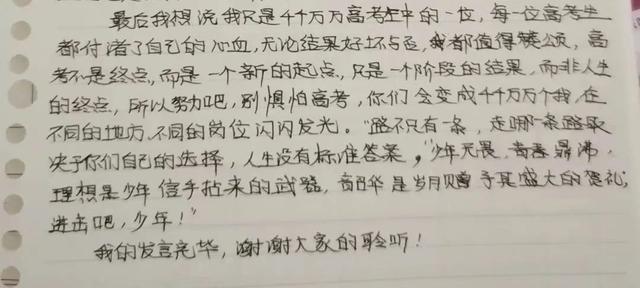 最后我想说我只是千千万万高考生中的一位，每一位高考生
都付诸了自己的心血，无论结果好坏与否，我都值得赞颂，高
考不是终点，而是一个新的起点，只是一个阶段的结果，而非人生
的终点，所以努力吧，别惧怕高考，你们会变成千千万万个我，在
不同的地方，不同的岗位闪闪发光。“路不只有一条，走哪一条路取
决于你们自己的选择，人生没有标准答案，“少年无畏，青春鼎沸，
理想是少年信手拈来的武器，韶华是岁月赠予其盛大的贺礼；
进击吧，少年！”
我的发言完毕，谢谢大家的聆听！